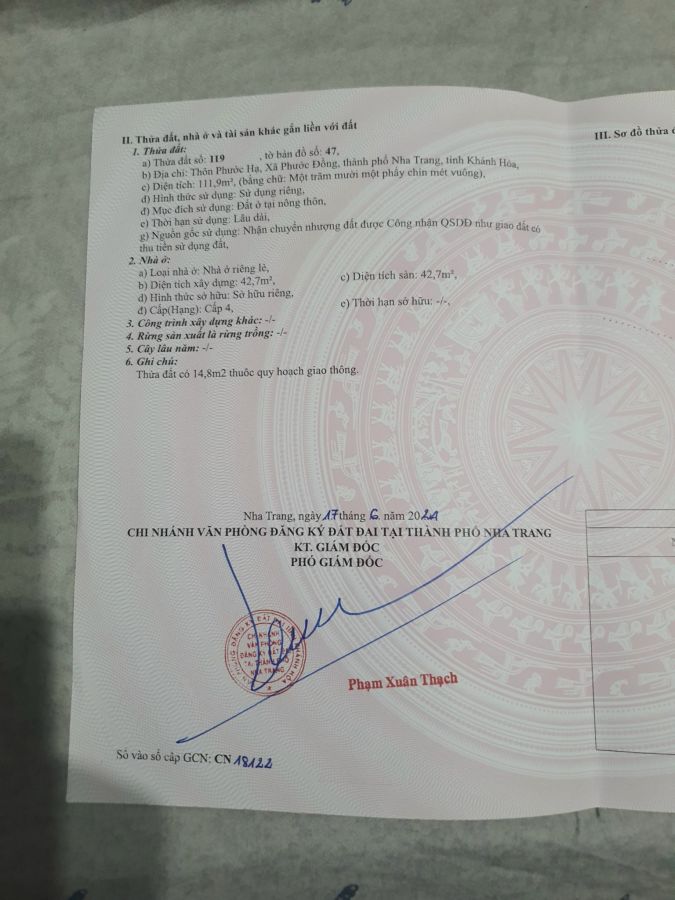 II. Thửa đất, nhà ở và tài sản khác gắn liền với đất
1. Thửa đất:
a) Thửa đất số: 119 , tờ bản đồ số: 47,
b) Địa chỉ: Thôn Phước Hạ, Xã Phước Đồng, thành phố Nha Trang, tỉnh Khánh Hòa,
c) Diện tích: 111,9m², (bằng chữ: Một trăm mười một phẩy chín mét vuông),
d) Hình thức sử dụng: Sử dụng riêng,
đ) Mục đích sử dụng: Đất ở tại nông thôn,
e) Thời hạn sử dụng: Lâu dài,
g) Nguồn gốc sử dụng: Nhận chuyển nhượng đất được Công nhận QSDĐ như giao đất có
thu tiền sử dụng đất,
2. Nhà ở:
a) Loại nhà ở: Nhà ở riêng lẻ,
b) Diện tích xây dựng: 42,7m², c) Diện tích sàn: 42,7m²,
d) Hình thức sở hữu: Sở hữu riêng,
đ) Cấp(Hạng): Cấp 4, e) Thời hạn sở hữu: -/-,
3. Công trình xây dựng khác: -/-
4. Rừng sản xuất là rừng trồng: -/-
5. Cây lâu năm: -/-
6. Ghi chú:
Thửa đất có 14,8m2 thuộc quy hoạch giao thông.
Nha Trang, ngày 17 tháng 6. năm 2021
CHI NHÁNH VĂN PHÒNG ĐĂNG KÝ ĐẤT ĐAI TẠI THÀNH PHỐ NHA TRANG
KT. GIÁM ĐỐC
PHÓ GIÁM ĐỐC
CHI NHÁNH
VĂN PHÒNG
ĐĂNG KÝ ĐẤT
NHA TRANG
Phạm Xuân Thạch
Số vào sổ cấp GCN: CN 18122
III. Sơ đồ thửa